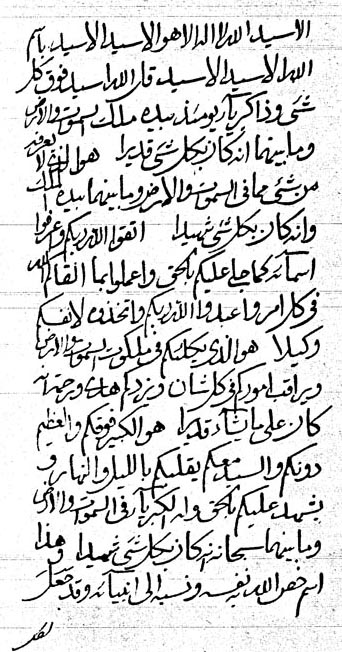 الاسيد الله لا اله الا هو الاسيد الاسيد باسم
الله الاسيد الاسيد قل الله اسيد فوق كل
شئ وذا كل يومئذ بيده ملك السموات والارض
وما بينهما انه كان بكل شئ قديرا هو الذي لا يعزب
من شئ مما في السموات والارض وما بينهما بيده الملك
وانه كان بكل شئ شهيدا اتقوا الله ربكم واعرفوا
اسمائه كما جاء عليكم بالحق واعملوا بما القائم
في كل امر واعبدوا الله ربكم واتخذوه لانفسكم
وكيلا هو الذي يكلئكم في ملكوت السموات والارض
ويراقب اموركم في كل شان ونزل بكم هدى ورحمة انه
كان على ما يشاء قديرا هو الكبير فوقكم والعظيم
دونكم والسيد معكم يقلبكم بالليل والنهار و
يشهد عليكم بالحق وله الكبرياء في السموات والارض
وما بينهما سبحانه انه كان بكل شئ شهيدا وهذا
اسم خص الله به نفسه ونسبه الى انبيائه وقد جعل
لكل